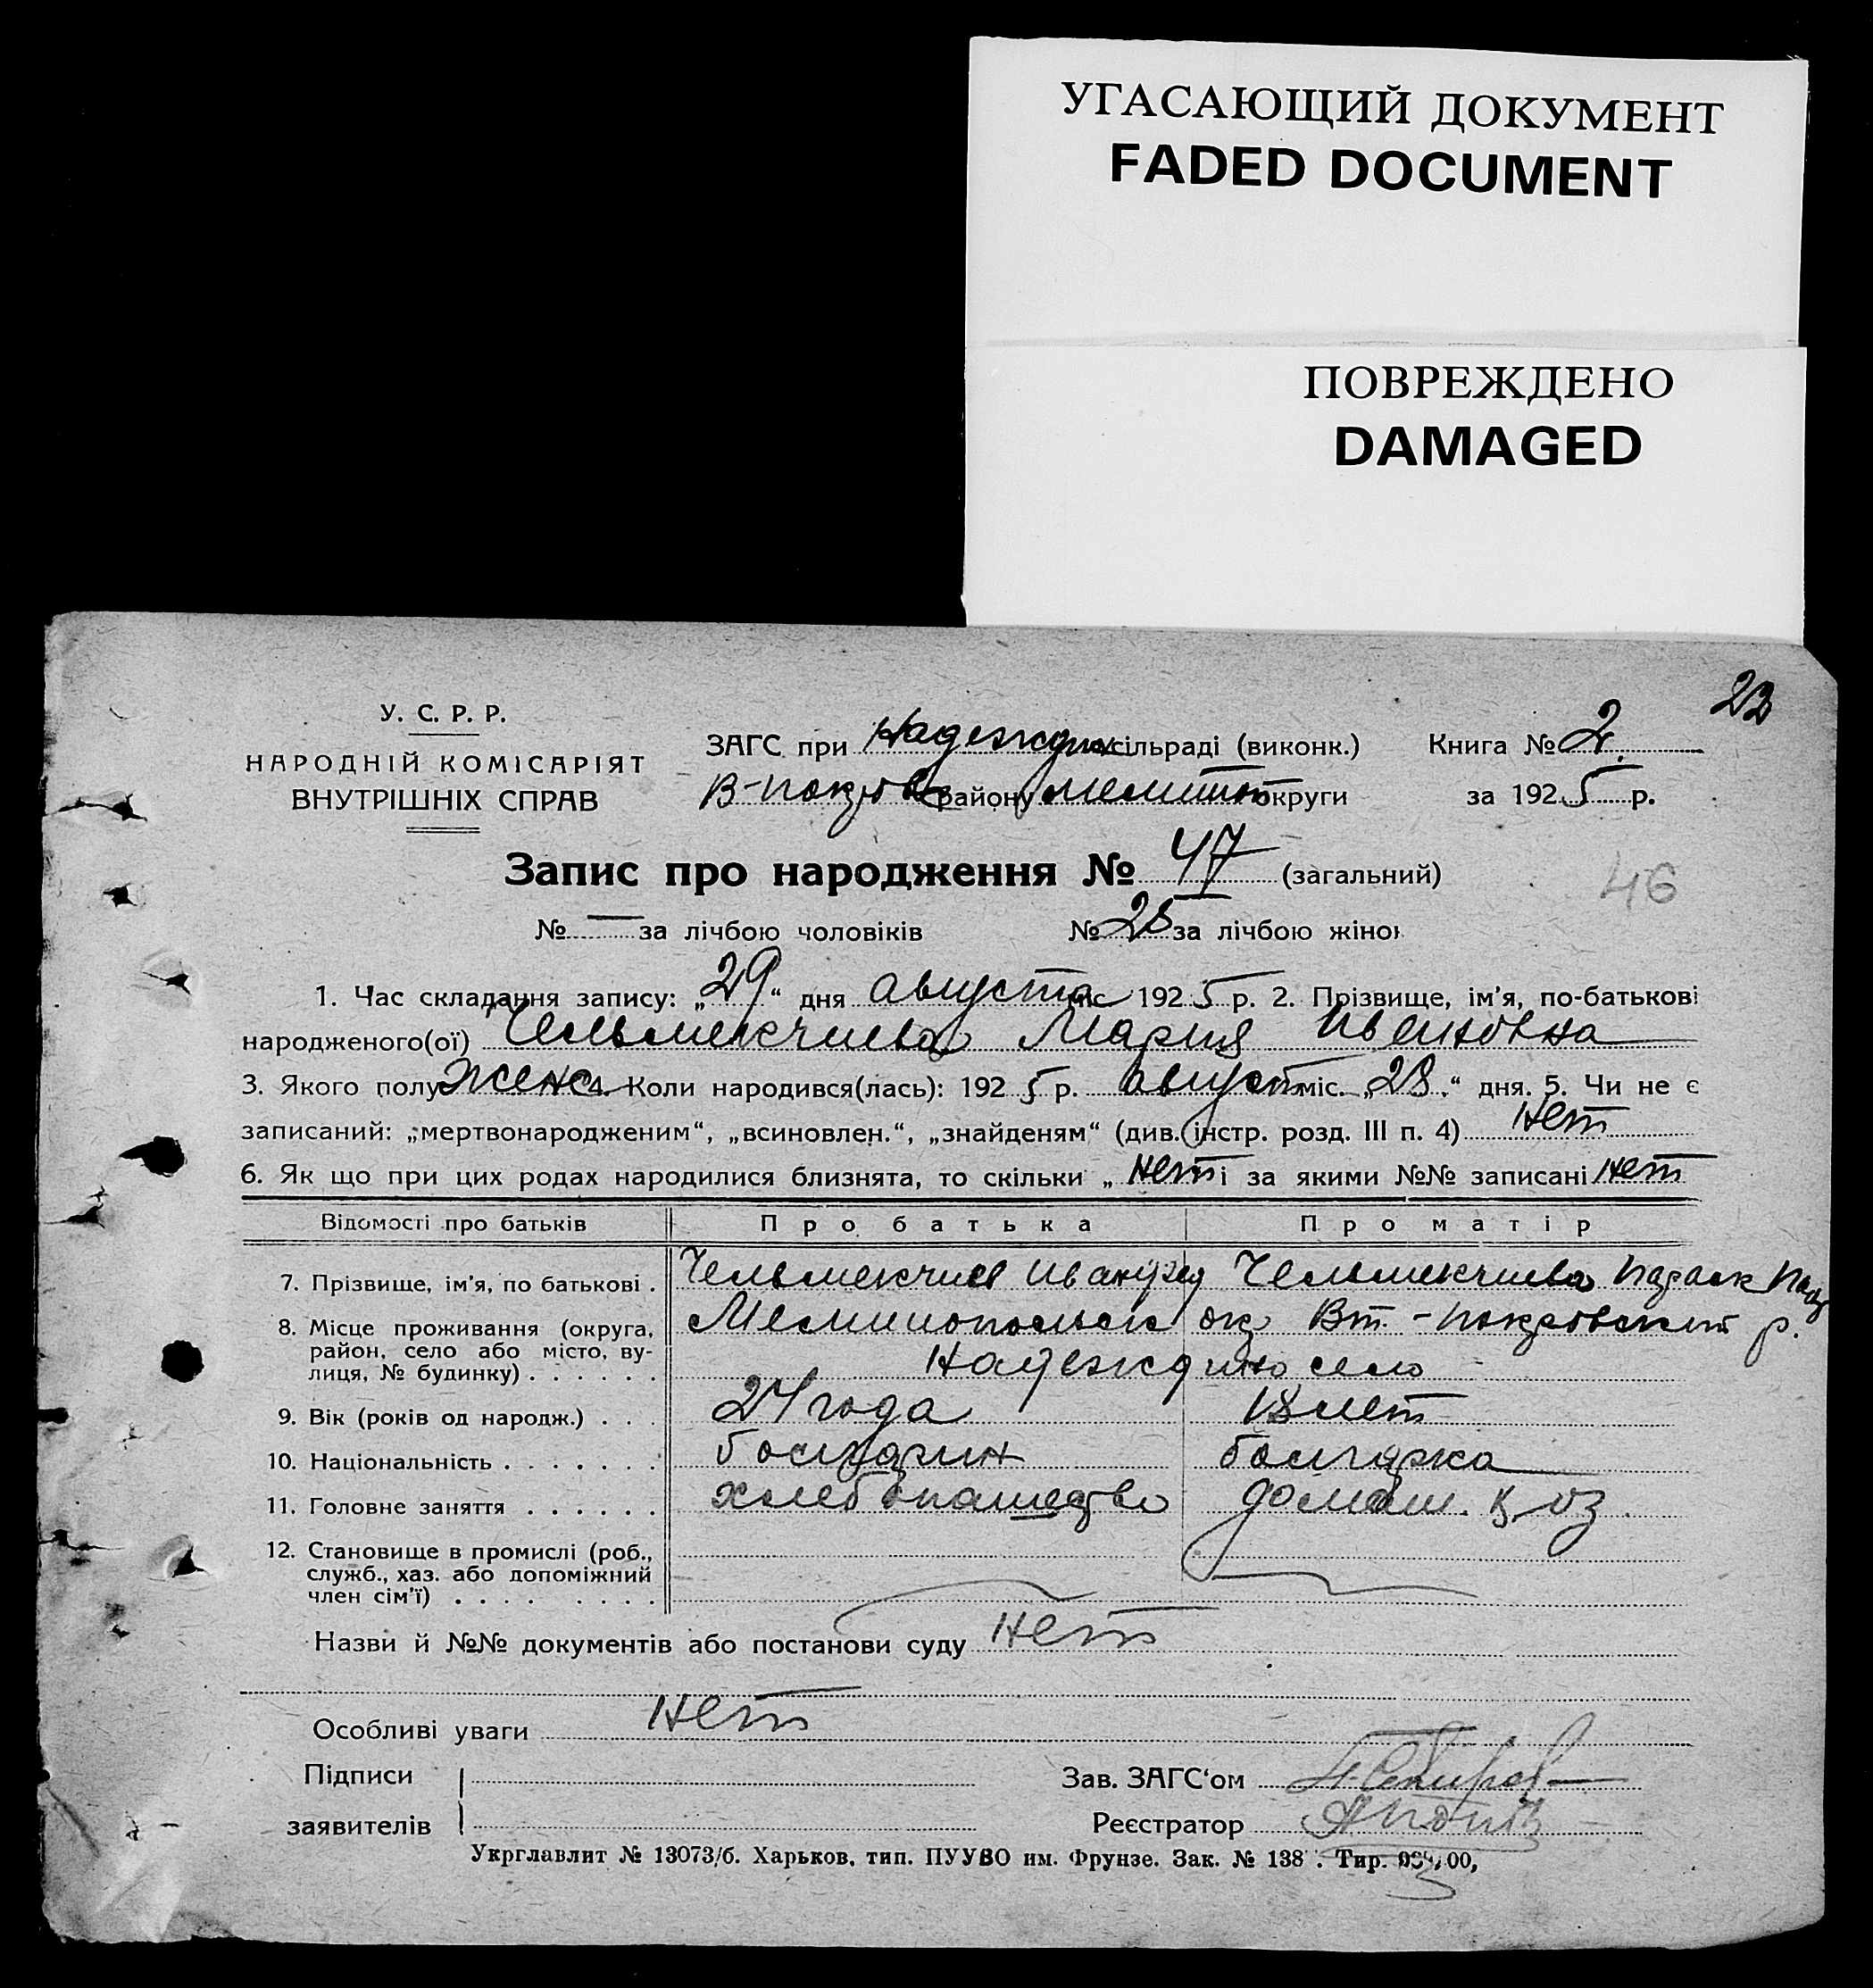 УГАСАЮЩИЙ ДОКУМЕНТ
FADED DOCUMENT
ПОВРЕЖДЕНО
DAMAGED
23
У. С. Р. Р.
НАРОДНІЙ КОМІСАРІЯТ
ВНУТРІШНІХ СПРАВ
ЗАГС при Надеждин сільраді (виконк.) Книга № 2
В-покров району Мелит округи за 1925 р.
Запис про народження № 47 (загальний)
46
№ — за лічбою чоловіків № 28 за лічбою жінок
1. Час складання запису: „29“ дня августа міс. 1925 р. 2. Прізвище, ім’я, по-батькові
народженого(ої) Чельмекчиева Мария Ивановна
3. Якого полу женс 4. Коли народився(лась): 1925 р. август міс. „28“ дня. 5. Чи не є
записаний: „мертвонародженим“, „всиновлен.“, „знайденям“ (див. інстр. розд. III п. 4) нет
6. Як що при цих родах народилися близнята, то скільки „ нет і за якими №№ записані нет
Відомості про батьків Про батька Про матір
7. Прізвище, ім’я, по батькові . Чельмекчиев Иван Чельмекчиева Параск
8. Місце проживання (округа, Мелитопольск ок Вт.-покровский р.
район, село або місто, ву-
лиця, № будинку) . . . . . . Надеждино село
9. Вік (років од народж.) . . . 24 года 18 лет
10. Національність . . . . . . . болгарин болгарка
11. Головне заняття . . . . . . хлебопашество домаш. хоз.
12. Становище в промислі (роб.,
служб., хаз. або допоміжний
член сім’ї) . . . . . . . .
Назви й №№ документів або постанови суду нет
Особливі уваги нет
Підписи Зав. ЗАГС‘ом
заявителів Реєстратор
Укрглавлит № 13073/б. Харьков, тип. ПУУВО им. Фрунзе. Зак. № 138 . Тир.